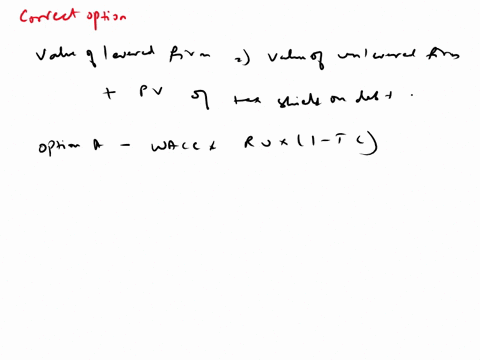 Correct option
Value of levered firm => value of unlevered firm
+ PV of tax shield on debt.
option A - WACC x RU x (1 - TC)